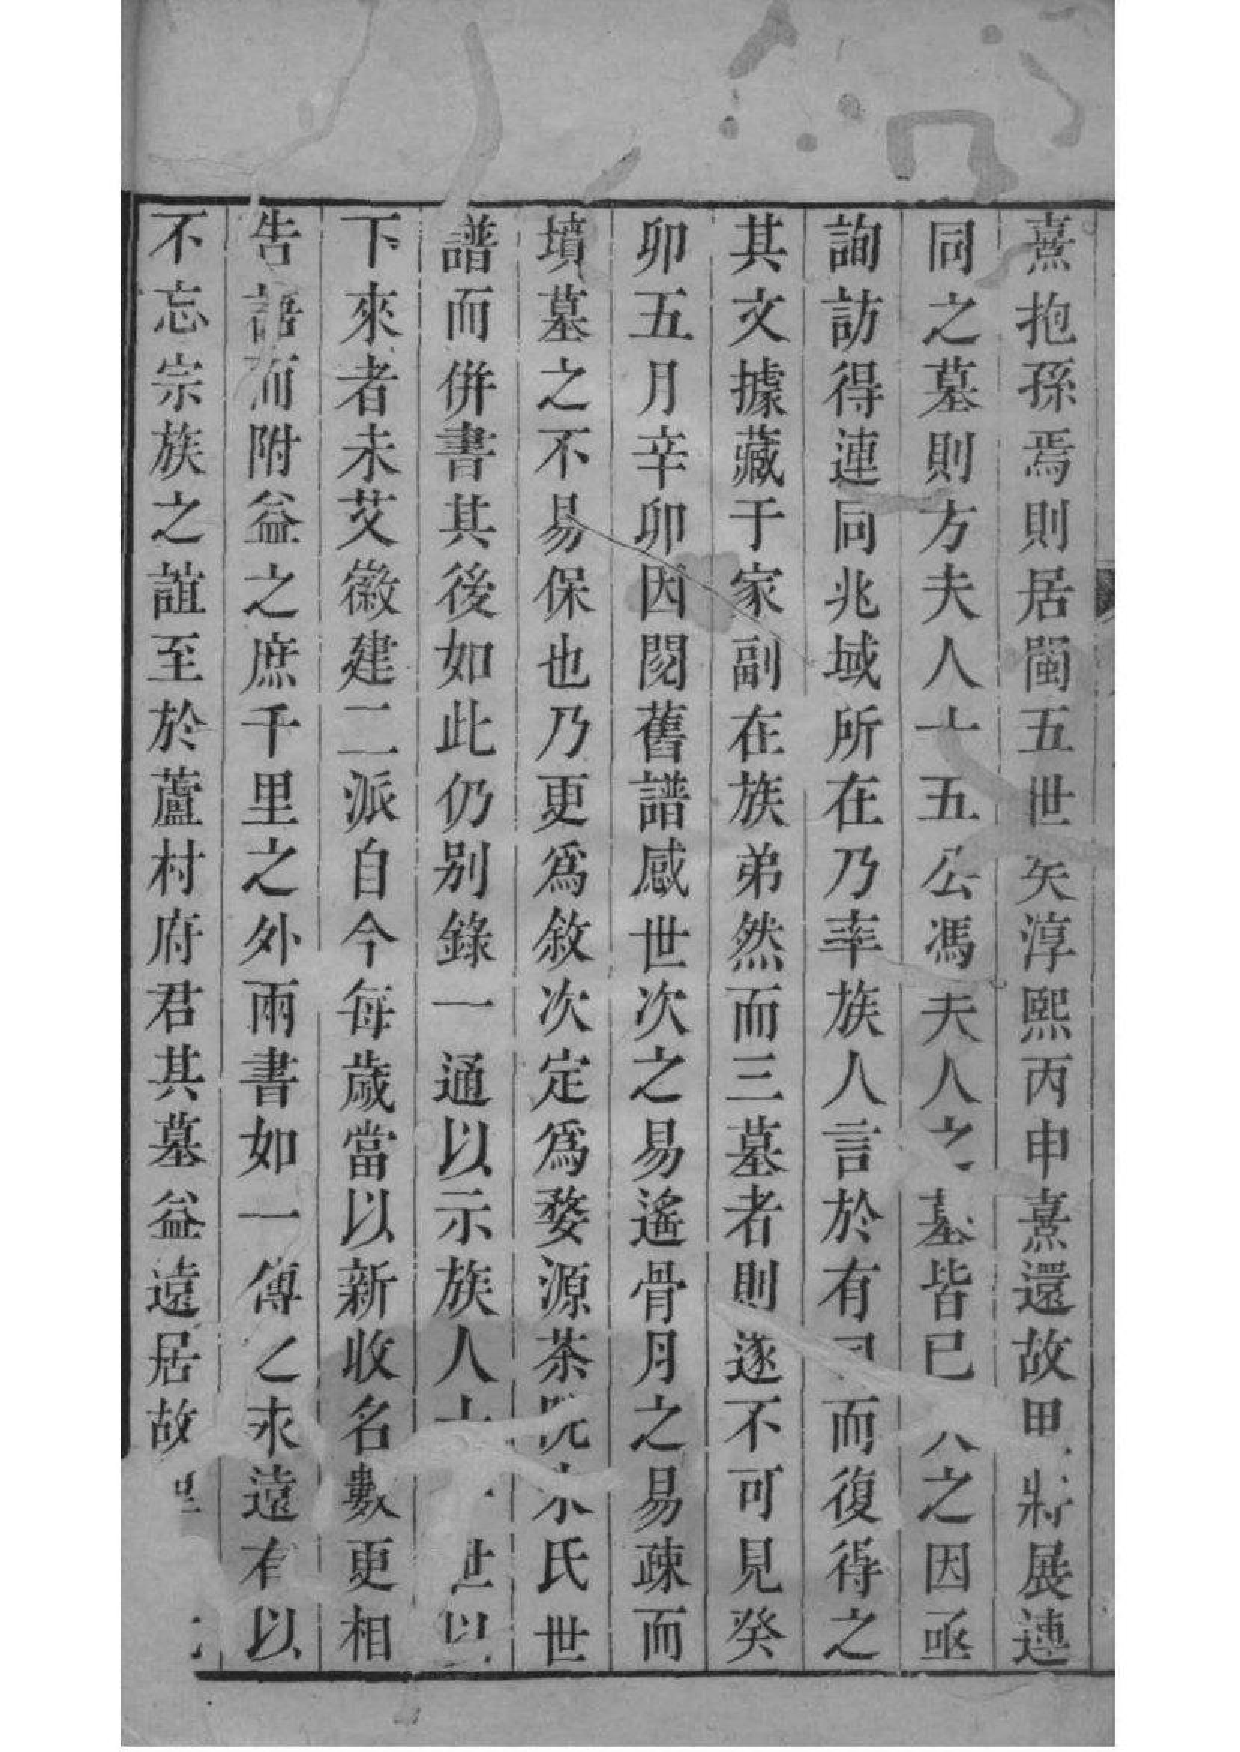 熹抱孫焉則居閩五世矣淳熙丙申熹還故里將展連
同之墓則方夫人十五公馮夫人之墓皆已人之因亟
詢訪得連同兆域所在乃率族人言於有司而復得之
其文據藏于家副在族弟然而三墓者則遂不可見癸
卯五月辛卯因閱舊譜感世次之易遙骨月之易疎而
墳墓之不易保也乃更為敘次定為婺源茶院朱氏世
譜而併書其後如此仍别錄一通以示族人十一世以
下來者未艾徽建二派自今每歲當以新收名數更相
告語而附益之庶千里之外兩書如一傳之永遠有以
不忘宗族之誼至於蘆村府君其墓益遠居故里